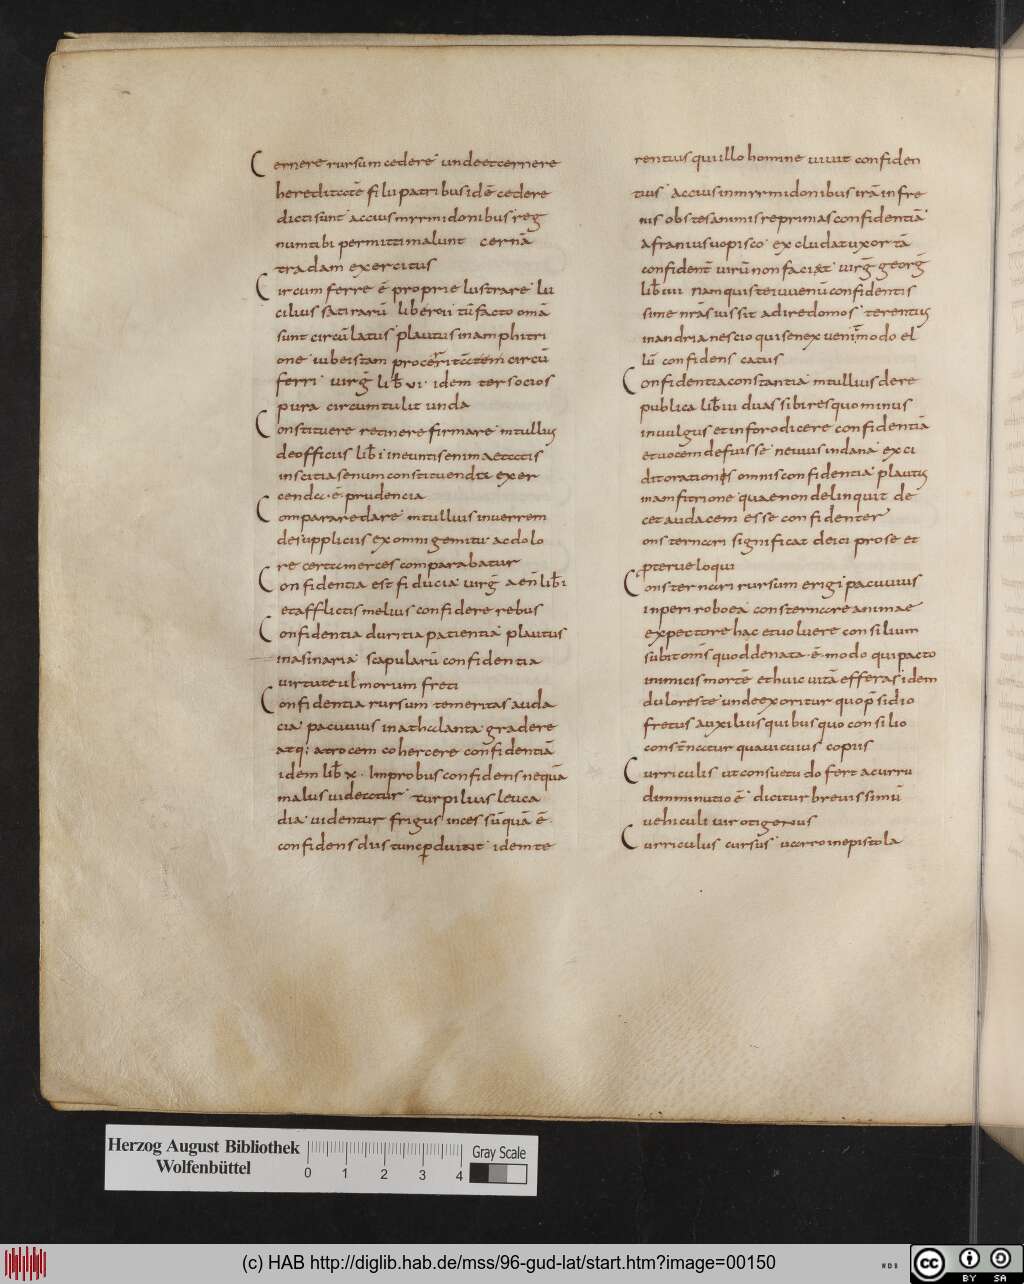 Cernere rursum cedere undeetcernere
hereditatē filii patribus idē cedere
dicti sunt accius mrmidonibus reg
num tibi permitti malunt cernā
tradam exercitus
Circum ferre ē proprie lustrare lu
cilius satirarū liberoii tū facto omā
sunt circū latus plautus inamphitri
one iubeistam procerritatem circū
ferri virg̅ lib̅ vi idem ter socios
pura circumtulit unda
Constituere retinere firmare mtullius
deofficiis lib̅ i ineuntis enim aetatis
inscitia senum constituenda exer
cenda ē prudencia
Comparare dare mtullius inverrem
desuppliciis ex omni gemitu ac dolo
re certa merces comparabatur
Confidentia est fiducia virg̅ aen̅ lib̅i
et afflictis melius confidere rebus
Confidentia duritia patientia plautus
inasinaria scapularū confidentia
virtute ulmorum freti
Confidentia rursum temeritas auda
cia pacuvius inathalanta gradere
atq; atrocem cohercere confidentiā
idem lib̅ x. Improbus confidens nequā
malus videatur turpilius leuca
dia videntur frigus inces sūquā ē
confidens dius tunc perduitat idem te
rentius qui illo homine vivit confiden
tius accius inmrmidonibus irā infre
nis obstes animis reprimas confidentiā
afranius vopisco excludat uxor tā
confident̅ virū non faciat virg̅ georg̅
lib̅ iiii nam quis te iuvenū confidentis
sime nr̅as iussit adire domos terentius
inandria nescio qui senex venit modo el
lū confidens catus
Confidentia constantia mtullius dere
publica lib̅ iii duas sibi res quominus
invulgus et inforo dicere confidentiā
et vocem defuisse nevius indanā exci
ditorationis omnis confidentia plautus
inamfitrione quae non delinquit de
cet audacem esse confidenter
onsternari significat deici prose et
pterve loqui
Consternari rursum erigi pacuvius
inperiroboea consternare animae
expectore hac et volvere consilium
subitom̅s quod denata ē modo qui pacto
inimicis mortē et huic vitā efferas idem
duloreste unde exoritur quo p̅sidio
fretus auxiliis quibus quo consilio
const̅natur quavicuius copiis
Curriculis ut consuetudo fert a curru
diminutio ē dicitur brevissimū
vehiculi virotigenus
Curriculus cursus varro inepistola
Herzog August Bibliothek
Wolfenbüttel
0 1 2 3 4
Gray Scale
(c) HAB http://diglib.hab.de/mss/96-gud-lat/start.htm?image=00150
WDB
cc BY SA